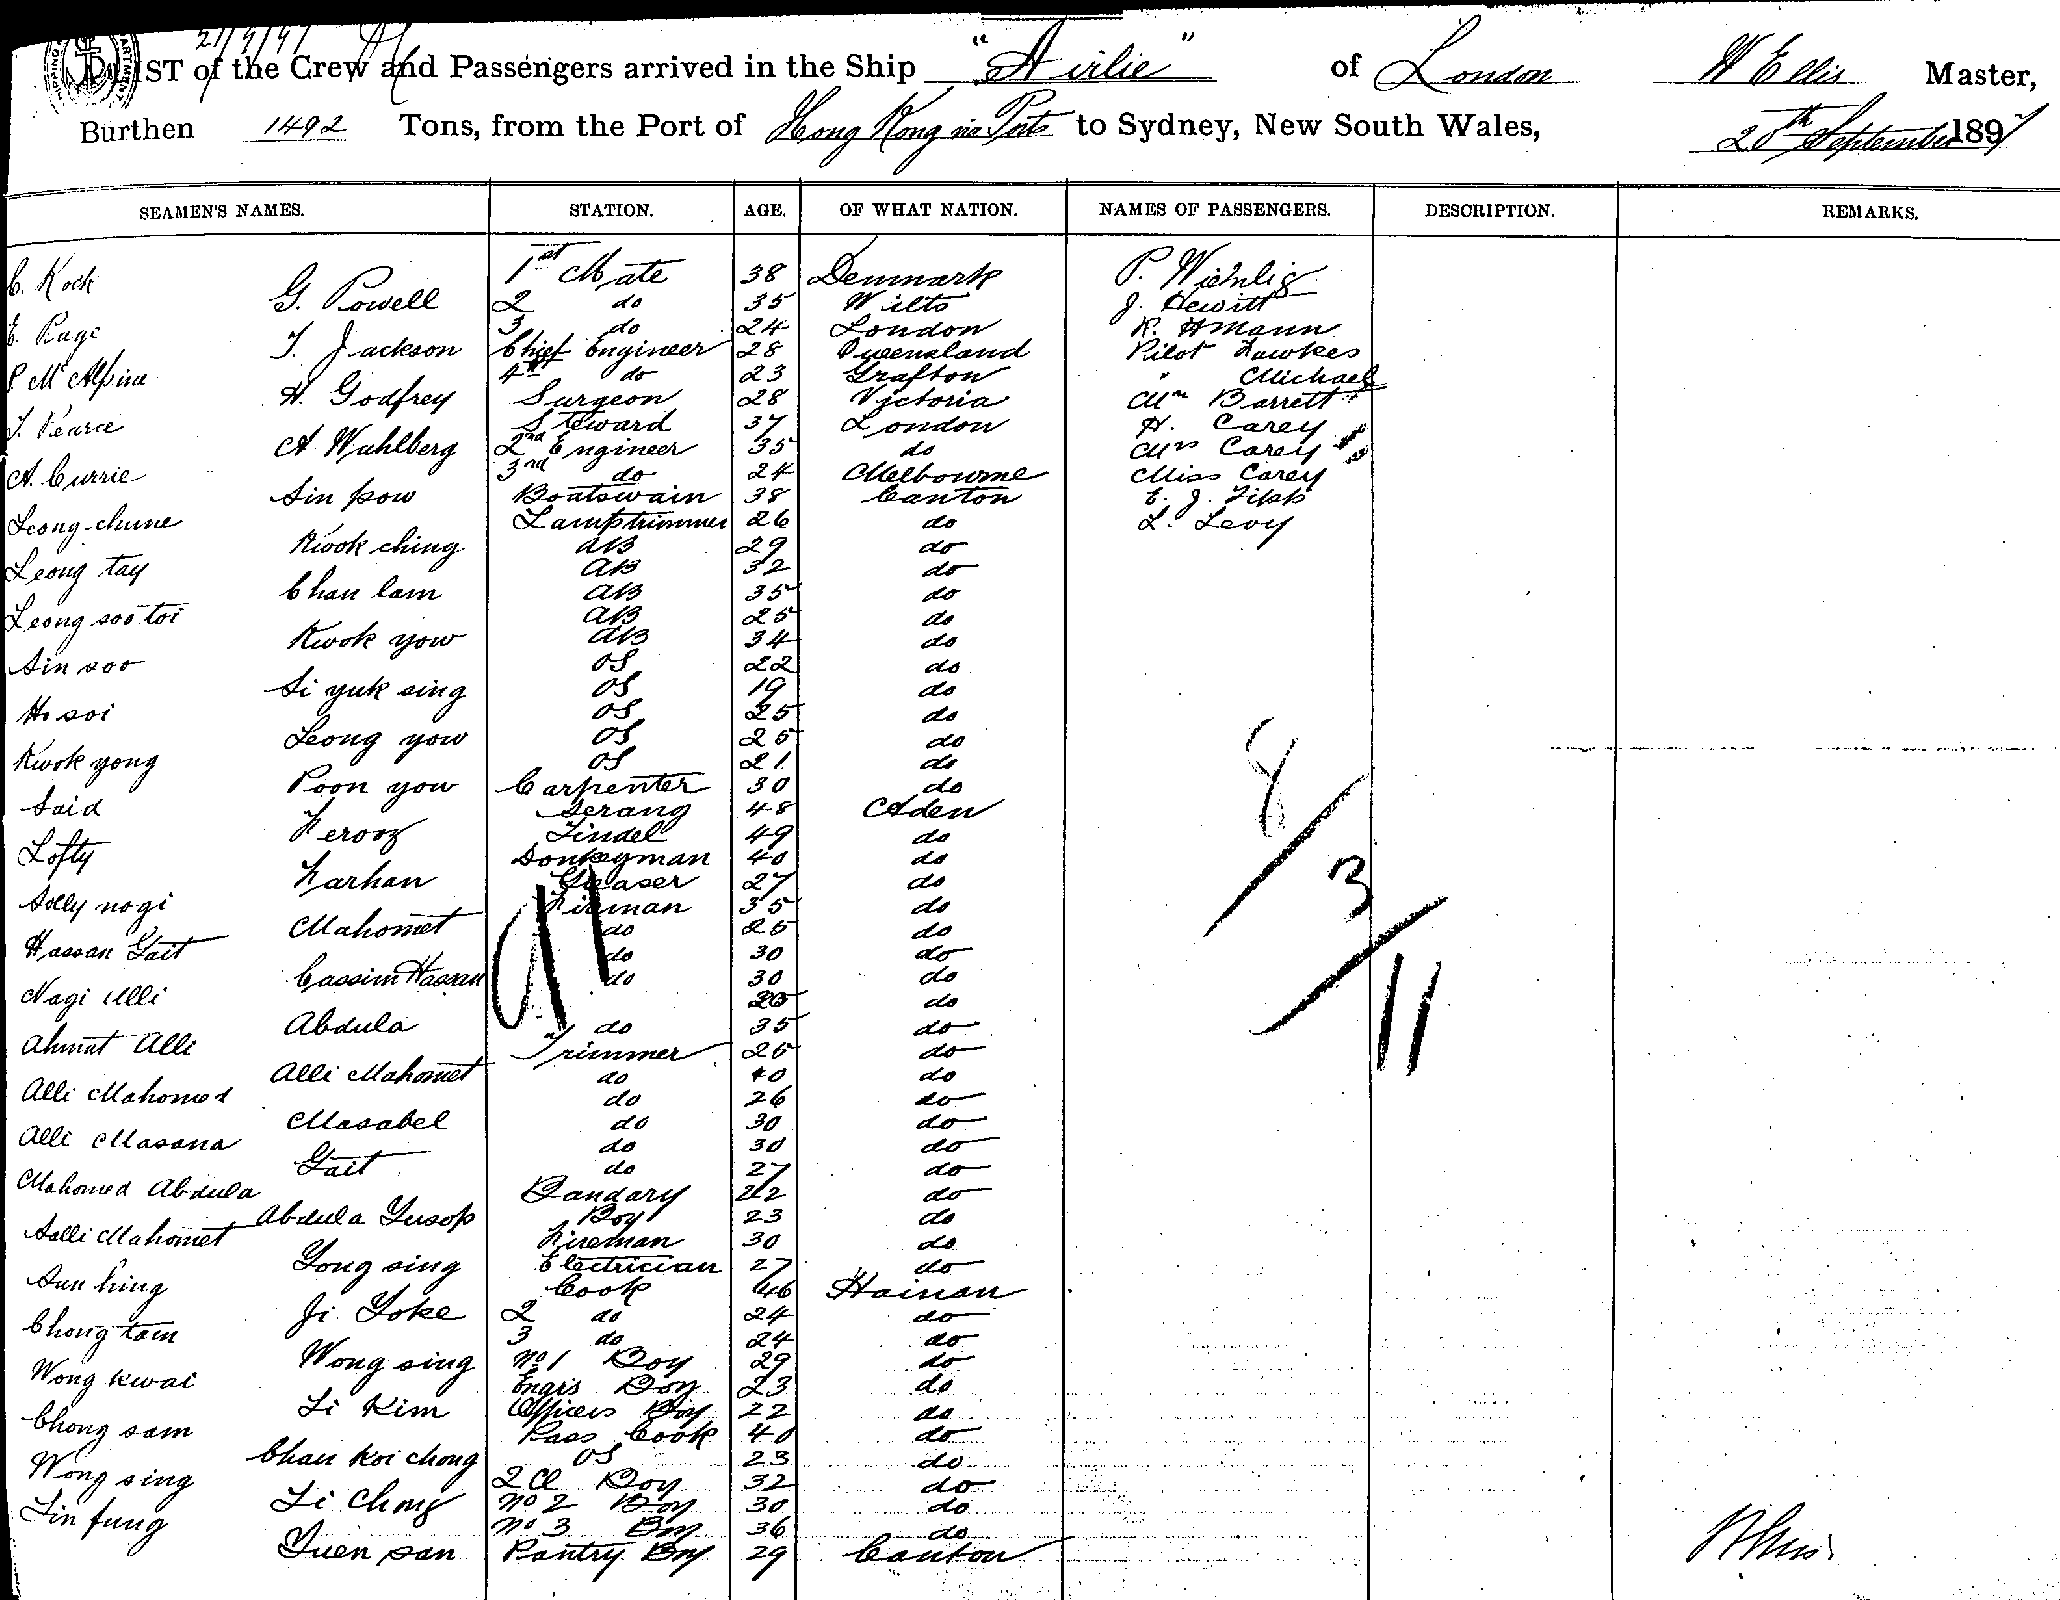 21/9/97
LIST of the Crew and Passengers arrived in the Ship "Airlie" of London W Ellis Master,
Burthen 1492 Tons, from the Port of Hong Kong via Ports to Sydney, New South Wales, 20th September 1897
SEAMEN'S NAMES. STATION. AGE. OF WHAT NATION. NAMES OF PASSENGERS. DESCRIPTION. REMARKS.
C. Kock 1st Mate 38 Denmark P.
G. Powell 2 do 35 Wilts J. Hewitt
E. Page 3 do 24 London R. Hmann
T. Jackson Chief Engineer 28 Queensland Pilot Fawkes
P McAlpine 4th do 23 Grafton " Michael
H. Godfrey Surgeon 28 Victoria Barrett
T. Pearce Steward 37 London H. Carey
A Wahlberg 2nd Engineer 35 do Mrs Carey
A. Currie 3rd do 24 Melbourne Miss Carey
Sin pow Boatswain 38 Canton E. J.
Leong chune Lamptrimmer 26 do L. Levy
Kwok ching AB 29 do
Leong tay AB 32 do
Chan lam AB 35 do
Leong soo toi AB 25 do
Kwok yow AB 34 do
Sin soo OS 22 do
Si yuk sing OS 19 do
Ho soi OS 25 do
Leong yow OS 25 do
Kwok yong OS 21 do
Poon yow Carpenter 30 do
Said Serang 48 Aden
Ferooz Tindel 49 do
Lofty Donkeyman 40 do
Farhan Greaser 27 do
Sally nogi Fireman 35 do
Mahomet do 25 do
Hassan Gait do 30 do
Cassim Hassan do 30 do
Nagi Alli 25 do
Abdula do 35 do
Ahmat Alli Trimmer 25 do
Alli Mahomet do 40 do
Alli Mahomed do 26 do
Masabel do 30 do
Alli Masana do 30 do
Gait do 27 do
Mahomed Abdula Bandary 22 do
Abdula Yusop Boy 23 do
Salli Mahomet Fireman 30 do
Yong sing Electrician 27 do
Sun hing Cook 46 Hainan
Ji Yoke 2 do 24 do
Chong tam 3 do 24 do
Wong sing No 1 Boy 29 do
Wong kwai Engrs Boy 23 do
Li Kim Officers Boy 22 do
Chong sam Pass Cook 40 do
Chau Koi chong OS 23 do
Wong sing 2 Cl Boy 32 do
Li Chong No 2 Boy 30 do
Lin fung No 3 Boy 36 do
Yuen san Pantry Boy 29 Canton
91
8
/
3
/
11